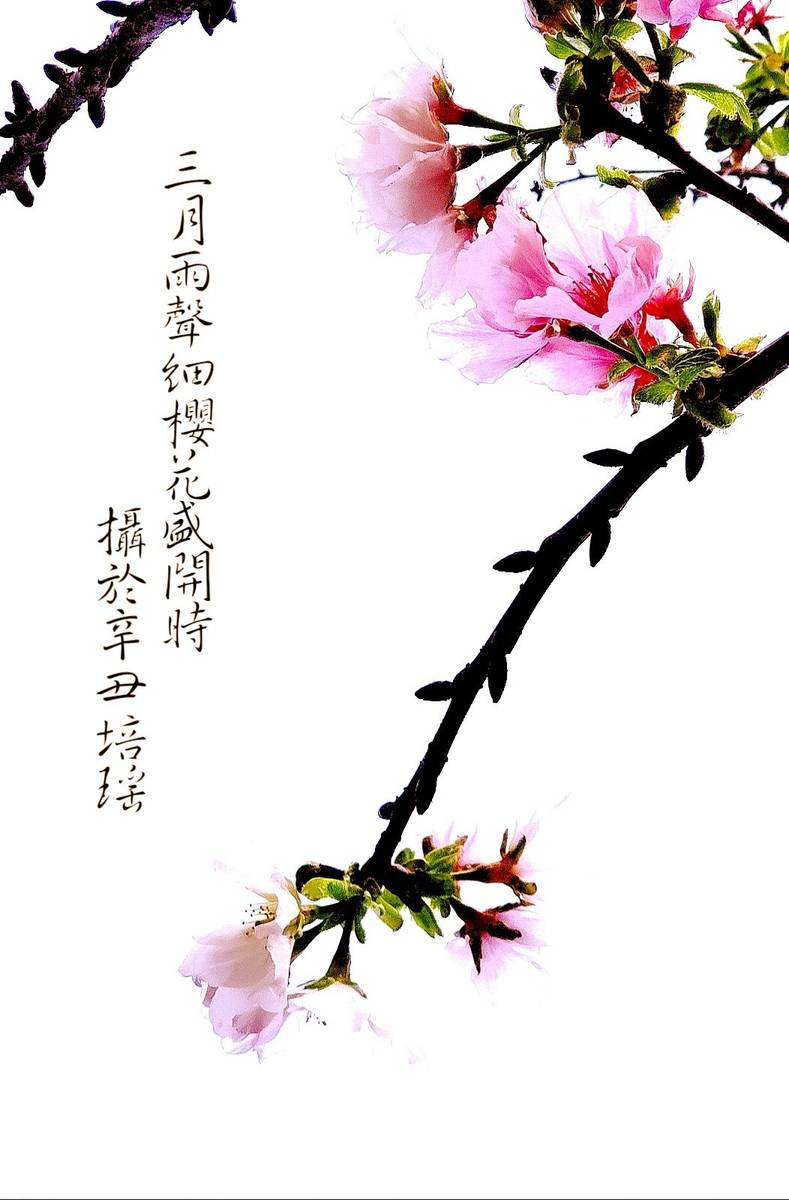 三月雨聲細櫻花盛開時
攝於辛丑培瑶